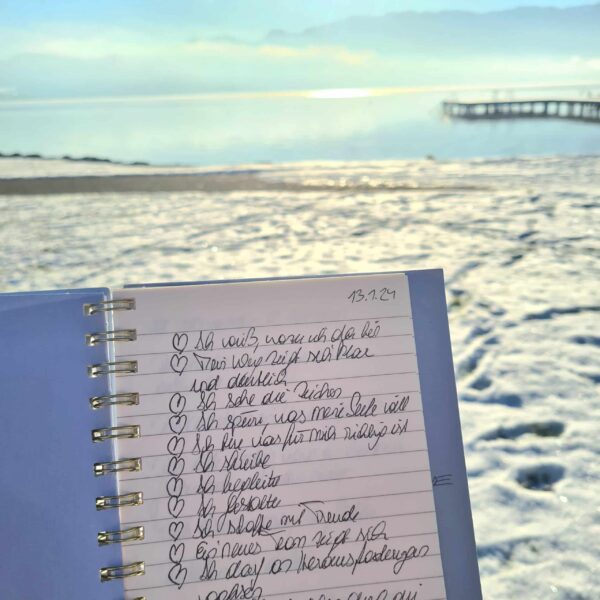 13.1.24
♡ Ich weiß, wozu ich da bin
♡ Mein Weg zeigt sich klar
und deutlich
♡ Ich sehe die Zeichen
♡ Ich spüre, was meine Seele will
♡ Ich tue was für mich richtig ist
♡ Ich schreibe
♡ Ich begleite
♡ Ich gestalte
♡ Ich schaffe mit Freude
♡ Ein neues Team zeigt sich
♡ Ich darf an Herausforderungen
wachsen